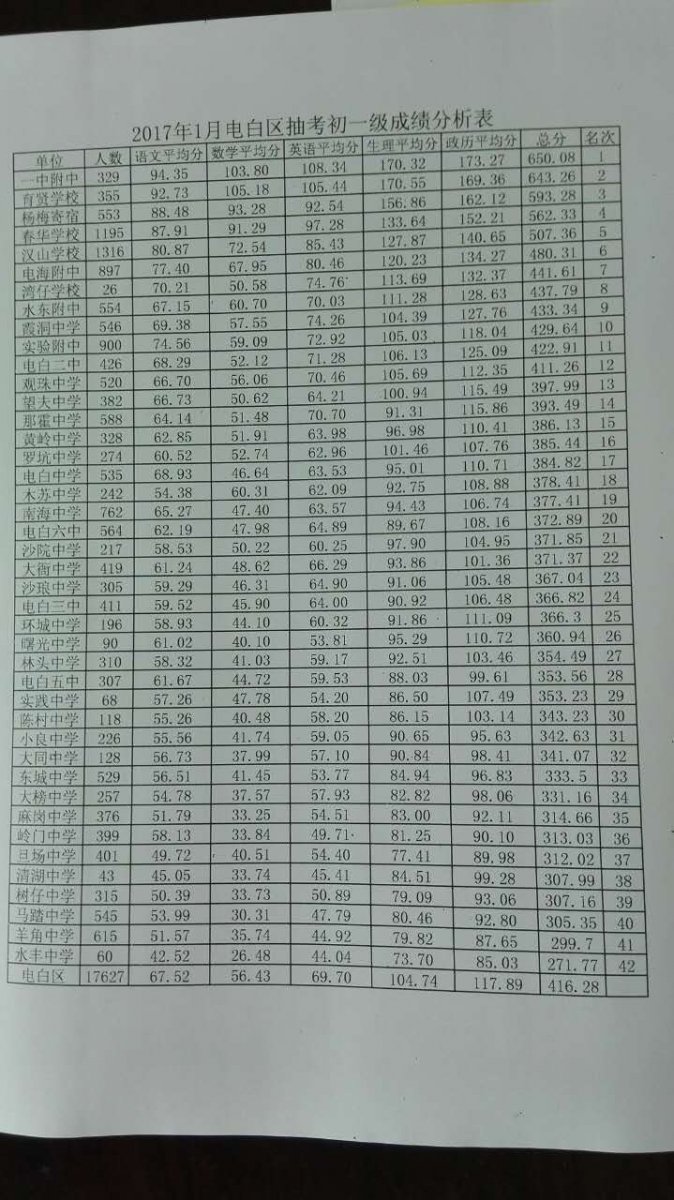 2017年1月电白区抽考初一级成绩分析表
单位 人数 语文平均分 数学平均分 英语平均分 生理平均分 政历平均分 总分 名次
一中附中 329 94.35 103.80 108.34 170.32 173.27 650.08 1
育贤学校 355 92.73 105.18 105.44 170.55 169.36 643.26 2
杨梅寄宿 553 88.48 93.28 92.54 156.86 162.12 593.28 3
春华学校 1195 87.91 91.29 97.28 133.64 152.21 562.33 4
汉山学校 1316 80.87 72.54 85.43 127.87 140.65 507.36 5
电海附中 897 77.40 67.95 80.46 120.23 134.27 480.31 6
湾仔学校 26 70.21 50.58 74.76 113.69 132.37 441.61 7
水东附中 554 67.15 60.70 70.03 111.28 128.63 437.79 8
霞洞中学 546 69.38 57.55 74.26 104.39 127.76 433.34 9
实验附中 900 74.56 59.09 72.92 105.03 118.04 429.64 10
电白二中 426 68.29 52.12 71.28 106.13 125.09 422.91 11
观珠中学 520 66.70 56.06 70.46 105.69 112.35 411.26 12
望夫中学 382 66.73 50.62 64.21 100.94 115.49 397.99 13
那霍中学 588 64.14 51.48 70.70 91.31 115.86 393.49 14
黄岭中学 328 62.85 51.91 63.98 96.98 110.41 386.13 15
罗坑中学 274 60.52 52.74 62.96 101.46 107.76 385.44 16
电白中学 535 68.93 46.64 63.53 95.01 110.71 384.82 17
木苏中学 242 54.38 60.31 62.09 92.75 108.88 378.41 18
南海中学 762 65.27 47.40 63.57 94.43 106.74 377.41 19
电白六中 564 62.19 47.98 64.89 89.67 108.16 372.89 20
沙院中学 217 58.53 50.22 60.25 97.90 104.95 371.85 21
大衙中学 419 61.24 48.62 66.29 93.86 101.36 371.37 22
沙琅中学 305 59.29 46.31 64.90 91.06 105.48 367.04 23
电白三中 411 59.52 45.90 64.00 90.92 106.48 366.82 24
环城中学 196 58.93 44.10 60.32 91.86 111.09 366.3 25
曙光中学 90 61.02 40.10 53.81 95.29 110.72 360.94 26
林头中学 310 58.32 41.03 59.17 92.51 103.46 354.49 27
电白五中 307 61.67 44.72 59.53 88.03 99.61 353.56 28
实践中学 68 57.26 47.78 54.20 86.50 107.49 353.23 29
陈村中学 118 55.26 40.48 58.20 86.15 103.14 343.23 30
小良中学 226 55.56 41.74 59.05 90.65 95.63 342.63 31
大同中学 128 56.73 37.99 57.10 90.84 98.41 341.07 32
东城中学 529 56.51 41.45 53.77 84.94 96.83 333.5 33
大榜中学 257 54.78 37.57 57.93 82.82 98.06 331.16 34
麻岗中学 376 51.79 33.25 54.51 83.00 92.11 314.66 35
岭门中学 399 58.13 33.84 49.71 81.25 90.10 313.03 36
旦场中学 401 49.72 40.51 54.40 77.41 89.98 312.02 37
清湖中学 43 45.05 33.74 45.41 84.51 99.28 307.99 38
树仔中学 315 50.39 33.73 50.89 79.09 93.06 307.16 39
马踏中学 545 53.99 30.31 47.79 80.46 92.80 305.35 40
羊角中学 615 51.57 35.74 44.92 79.82 87.65 299.7 41
水丰中学 60 42.52 26.48 44.04 73.70 85.03 271.77 42
电白区 17627 67.52 56.43 69.70 104.74 117.89 416.28